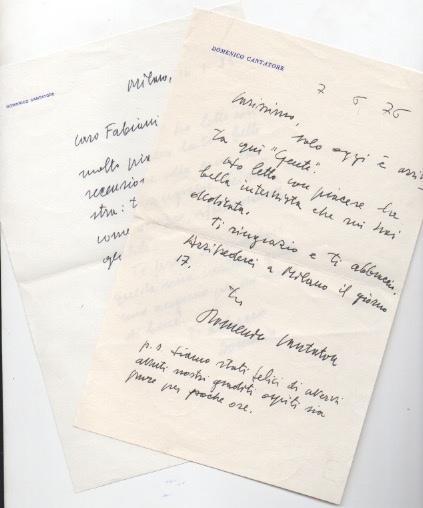 DOMENICO CANTATORE
Milano,
caro Fabiani
molto
recensio
stra:
come
DOMENICO CANTATORE
7 6 76
Carissimo,
solo oggi è arri-
ta qui "Gente".
Ho letto con piacere la
bella intervista che mi hai
dedicata.
Ti ringrazio e ti abbraccio.
Arrivederci a Milano il giorno
17.
Tu
Domenico Cantatore
p.s. siamo stati felici di avervi
avuti nostri graditi ospiti sia
pure per poche ore.